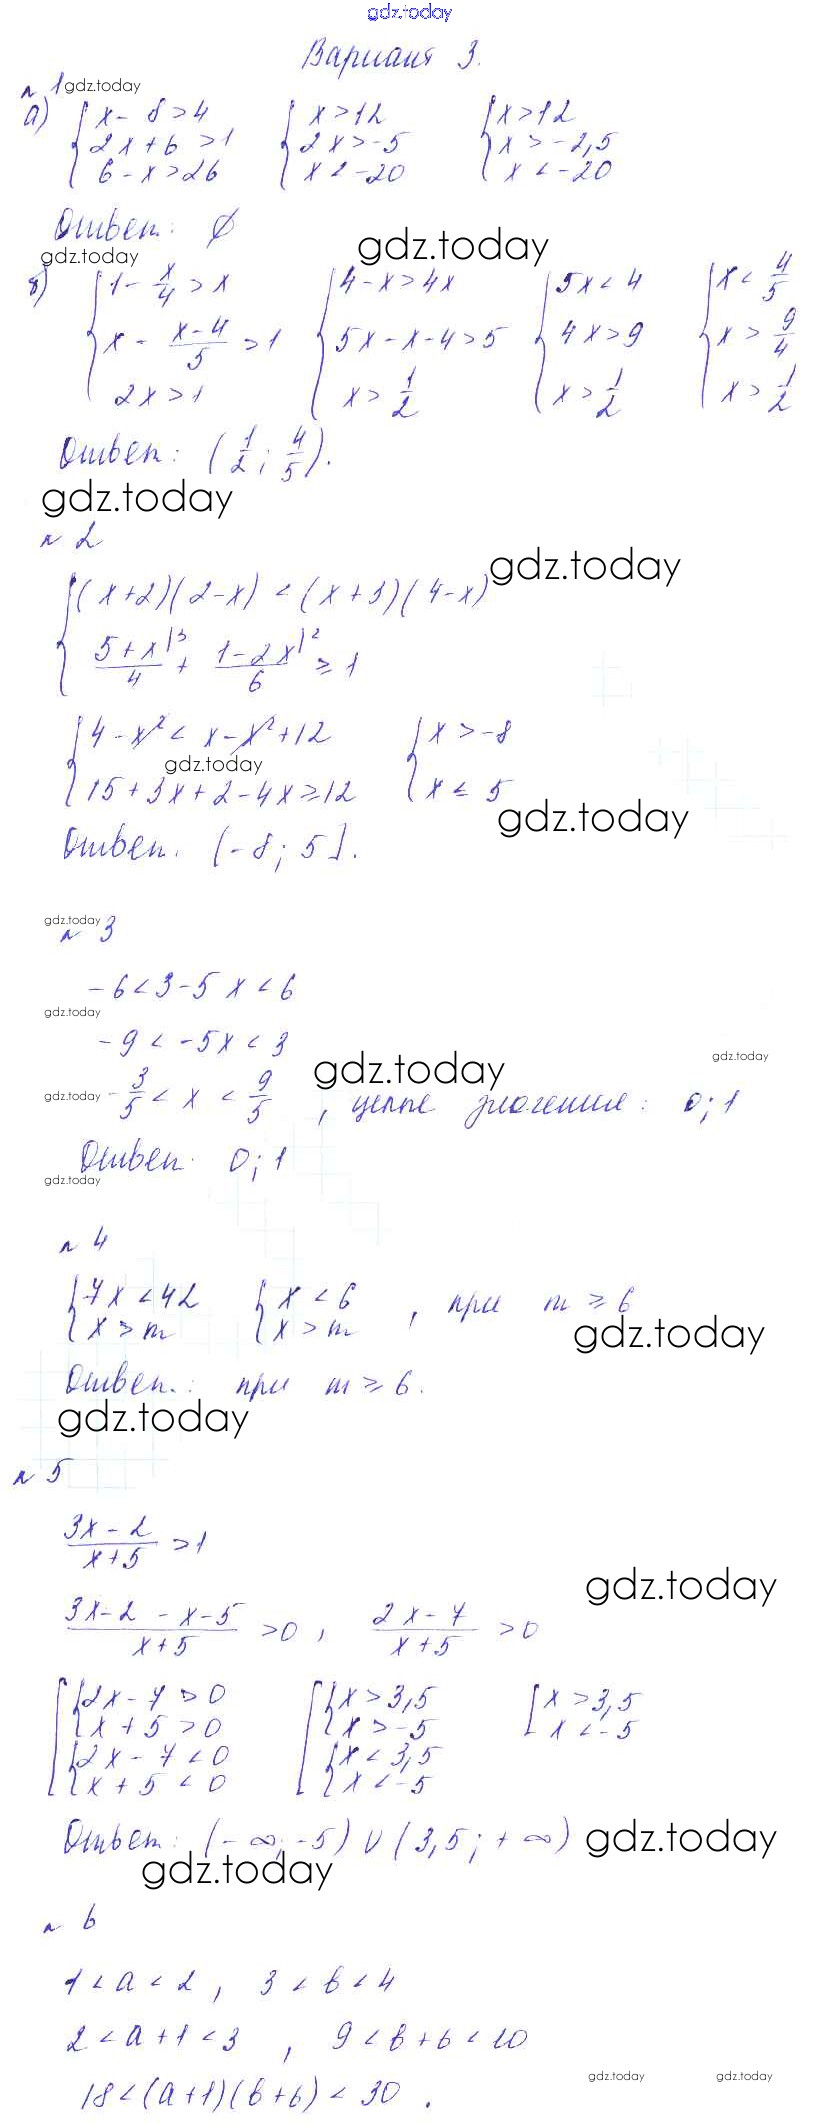 gdz.today
Вариант 3.
№ 1 gdz.today
а) { x - 8 > 4 { x > 12 { x > 12
2x + 6 > 1 2x > -5 x > -2,5
6 - x > 26 x < -20 x < -20
Ответ: ∅
gdz.today gdz.today
б) { 1 - x/4 > x { 4 - x > 4x { 5x < 4 { x < 4/5
x - (x-4)/5 > 1 5x - x - 4 > 5 4x > 9 x > 9/4
2x > 1 x > 1/2 x > 1/2 x > 1/2
Ответ: (1/2; 4/5).
gdz.today
№ 2
gdz.today
{ (x+2)(2-x) < (x+3)(4-x)
(5+x)/4 |3 + (1-2x)/6 |2 ≥ 1
{ 4 - x² < x - x² + 12 { x > -8
gdz.today
15 + 3x + 2 - 4x ≥ 12 x ≤ 5
gdz.today
Ответ. (-8; 5].
gdz.today
№ 3
-6 < 3 - 5x < 6
gdz.today
-9 < -5x < 3
gdz.today gdz.today
gdz.today -3/5 < x < 9/5 , целые значения: 0; 1
Ответ: 0; 1
gdz.today
№ 4
{ 7x < 42 { x < 6 , при m ≥ 6
x > m x > m
gdz.today
Ответ.: при m ≥ 6.
gdz.today
№ 5
(3x - 2)/(x + 5) > 1
gdz.today
(3x - 2 - x - 5)/(x + 5) > 0 , (2x - 7)/(x + 5) > 0
[ { 2x - 7 > 0 [ { x > 3,5 [ x > 3,5
x + 5 > 0 x > -5 x < -5
{ 2x - 7 < 0 { x < 3,5
x + 5 < 0 x < -5
Ответ: (-∞; -5) ∪ (3,5; +∞) gdz.today
gdz.today
№ 6
1 < a < 2 , 3 < b < 4
2 < a + 1 < 3 , 9 < b + 6 < 10
18 < (a+1)(b+6) < 30 .
gdz.today gdz.today